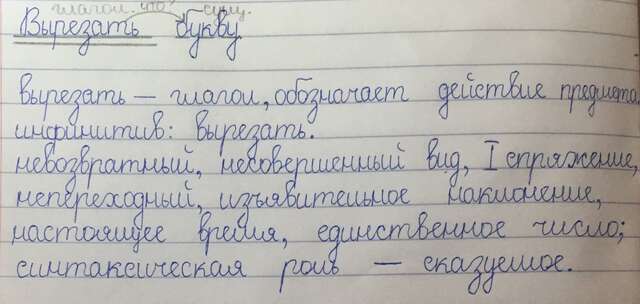 глагол. что? сущ.
Вырезать букву
вырезать — глагол, обозначает действие предмета
инфинитив: вырезать.
невозвратный, несовершенный вид, I спряжение,
непереходный, изъявительное наклонение,
настоящее время, единственное число;
синтаксическая роль — сказуемое.